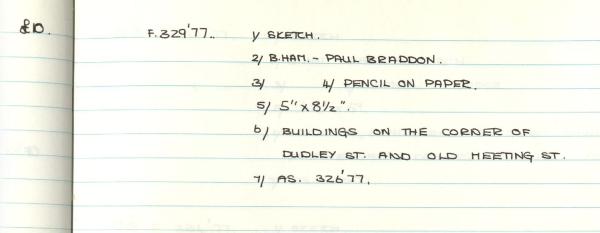 &D.
F.329'77.. 1/ SKETCH.
2/ B.HAM. - PAUL BRADDON.
3/ 4/ PENCIL ON PAPER.
5/ 5" x 8 1/2".
6/ BUILDINGS ON THE CORNER OF
DUDLEY ST. AND OLD MEETING ST.
7/ AS. 326'77.